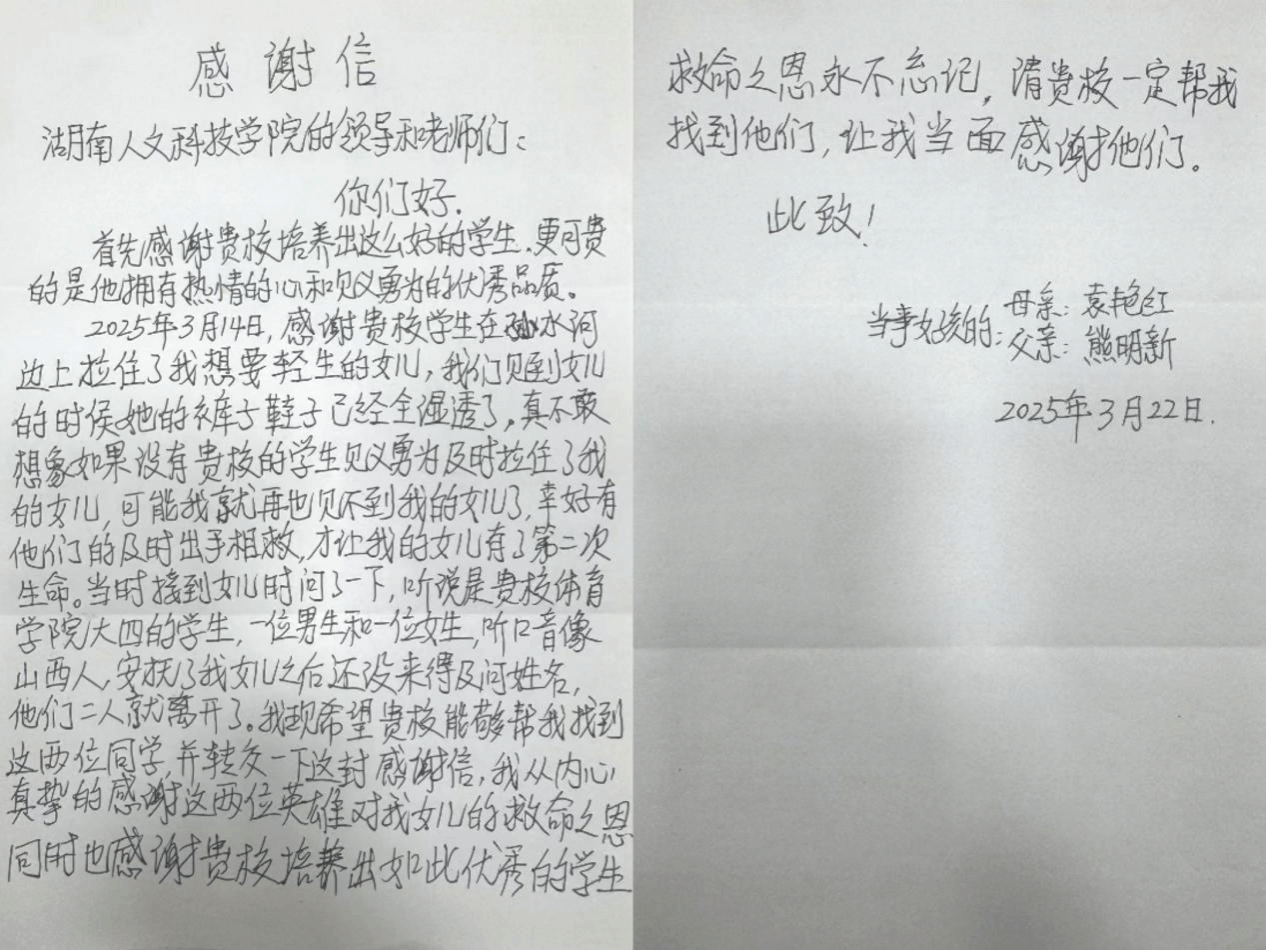 感谢信
湖南人文科技学院的领导和老师们：
你们好.
首先感谢贵校培养出这么好的学生.更可贵
的是他拥有热情的心和见义勇为的优秀品质。
2025年3月14日,感谢贵校学生在孙水河
边上拉住了我想要轻生的女儿,我们见到女儿
的时侯她的裤子鞋子已经全湿透了,真不敢
想象如果没有贵校的学生见义勇为及时拉住了我
的女儿,可能我就再也见不到我的女儿了,幸好有
他们的及时出手相救,才让我的女儿有了第二次
生命。当时接到女儿时问了一下,听说是贵校体育
学院大四的学生,一位男生和一位女生,听口音像
山西人,安抚了我女儿之后还没来得及问姓名,
他们二人就离开了。我现希望贵校能够帮我找到
这两位同学,并转交一下这封感谢信,我从内心
真挚的感谢这两位英雄对我女儿的救命之恩
同时也感谢贵校培养出如此优秀的学生
救命之恩永不忘记,请贵校一定帮我
找到他们,让我当面感谢他们。
此致!
当事女孩的:母亲:袁艳红
父亲:熊明新
2025年3月22日.